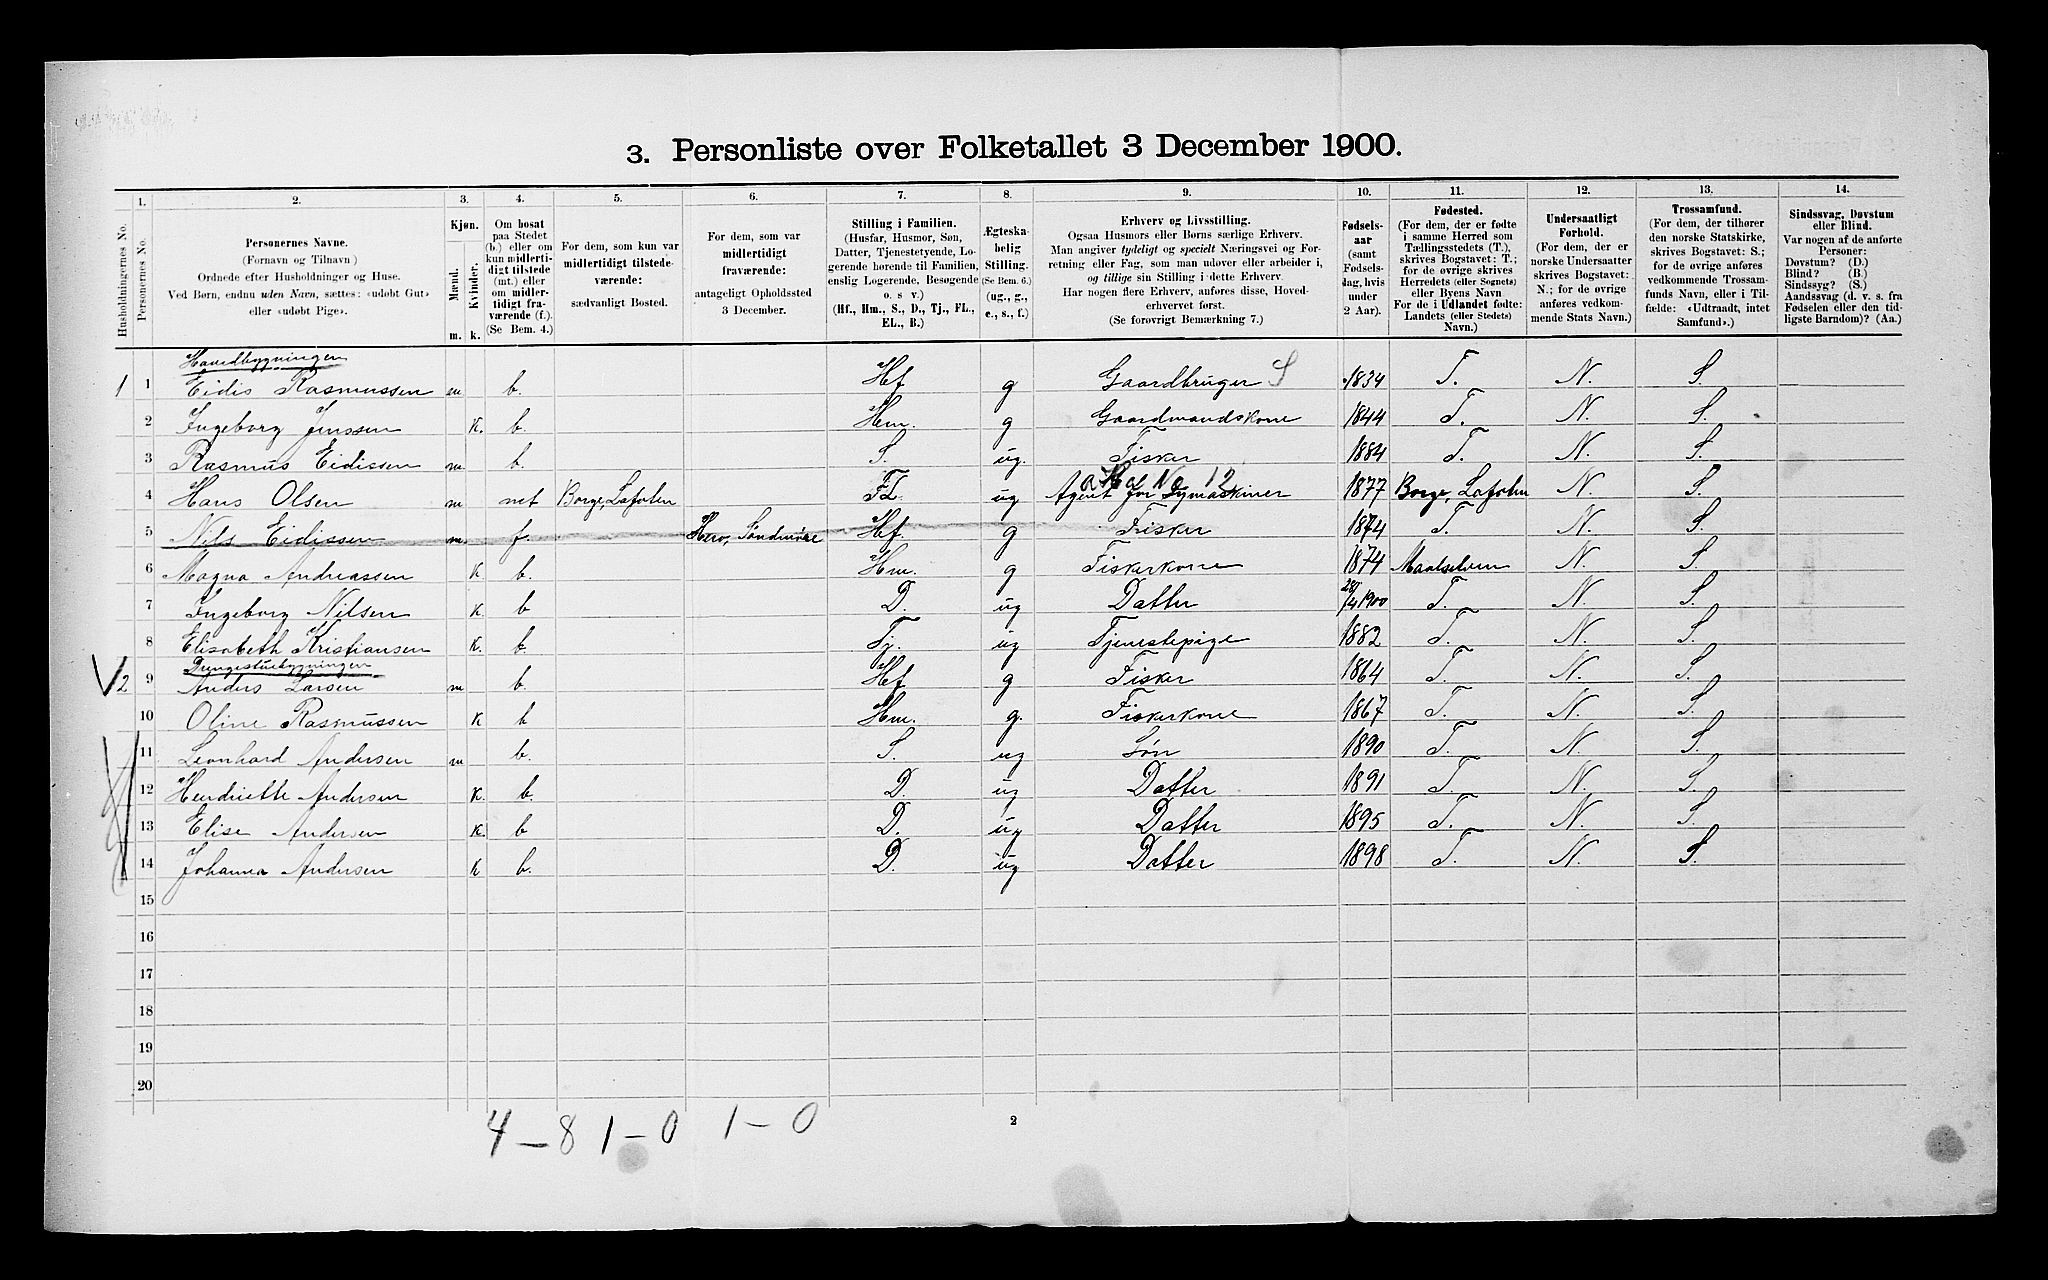 3. Personliste over Folketallet 3 December 1900.
1. 2. 3. 4. 5. 6. 7. 8. 9. 10. 11. 12. 13. 14.
Husholdningernes No.
Personernes No.
Personernes Navne.
(Fornavn og Tilnavn)
Ordnede efter Husholdninger og Huse.
Ved Børn, endnu uden Navn, sættes: «udøbt Gut»
eller «udøbt Pige».
Kjøn.
Mænd.
Kvinder.
m. k.
Om bosat
paa Stedet
(b.) eller om
kun midlerti-
digt tilstede
(mt.) eller
om midler-
tidigt fra-
værende (f.).
(Se Bem. 4.)
For dem, som kun var
midlertidigt tilstede-
værende:
sædvanligt Bosted.
For dem, som var
midlertidigt
fraværende:
antageligt Opholdssted
3 December.
Stilling i Familien.
(Husfar, Husmor, Søn,
Datter, Tjenestetyende, Lo-
gerende hørende til Familien,
enslig Logerende, Besøgende
o. s. v.)
(Hf., Hm., S., D., Tj., FL.,
EL., B.)
Ægteska-
belig
Stilling.
(Se Bem. 6.)
(ug., g.,
e., s., f.)
Erhverv og Livsstilling.
Ogsaa Husmors eller Børns særlige Erhverv.
Man angiver tydeligt og specielt Næringsvei og For-
retning eller Fag, som man udøver eller arbeider i,
og tillige sin Stilling i dette Erhverv.
Har nogen flere Erhverv, anføres disse, Hoved-
erhvervet først.
(Se forøvrigt Bemærkning 7.)
Fødsels-
aar
(samt
Fødsels-
dag, hvis
under
2 Aar).
Fødested.
(For dem, der er fødte
i samme Herred som
Tællingsstedets (T.),
skrives Bogstavet: T.;
for de øvrige skrives
Herredets (eller Sognets)
eller Byens Navn
For de i Udlandet fødte:
Landets (eller Stedets)
Navn.)
Undersaatligt
Forhold.
(For dem, der er
norske Undersaatter
skrives Bogstavet:
N.; for de øvrige
anføres vedkom-
mende Stats Navn.)
Trossamfund.
(For dem, der tilhører
den norske Statskirke,
skrives Bogstavet: S.;
for de øvrige anføres
vedkommende Trossam-
funds Navn, eller i Til-
fælde: «Udtraadt, intet
Samfund».)
Sindssvag, Døvstum
eller Blind.
Var nogen af de anførte
Personer:
Døvstum? (D.)
Blind? (B.)
Sindssyg? (S.)
Aandssvag (d. v. s. fra
Fødselen eller den tid-
ligste Barndom)? (Aa.)
Hovedbygningen
1 1 Eidis Rasmussen m b. Hf g Gaardbruger S 1834 T. N. S.
2 Ingeborg Jenssen k. b. Hm. g Gaardmandskone 1844 T. N. S.
3 Rasmus Eidissen m. b. S. ug. Fisker 1884 T. N. S.
4 Hans Olsen m mt Borge, Lofoten FL. ug Agent for Symaskiner 1877 Borge, Lofoten N. S.
5 Nils Eidissen m. f. Herø, Søndmøre Hf g Fisker 1874 T. N. S.
6 Magna Andreassen k b. Hm. g Fiskerkone 1874 Maalselven N. S.
7 Ingeborg Nilsen k b D. ug Datter 28/4 1900 T. N. S.
8 Elisabeth Kristiansen k. b. Tj. ug Tjenestepige 1882 T. N. S.
2 9 Anders Larsen m b. Hf g Fisker 1864 T. N. S.
10 Oline Rasmussen k b Hm. g. Fiskerkone 1867 T. N. S.
11 Leonhard Andersen m b. S. ug Søn 1890 T. N. S.
12 Henriette Andersen k. b. D. ug Datter 1891 T. N. S.
13 Elise Andersen k. b D. ug Datter 1895 T. N. S.
14 Johanna Andersen k b. D. ug Datter 1898 T. N. S.
15
16
17
18
19
20
4 – 8 1 – 0 1 – 0
2